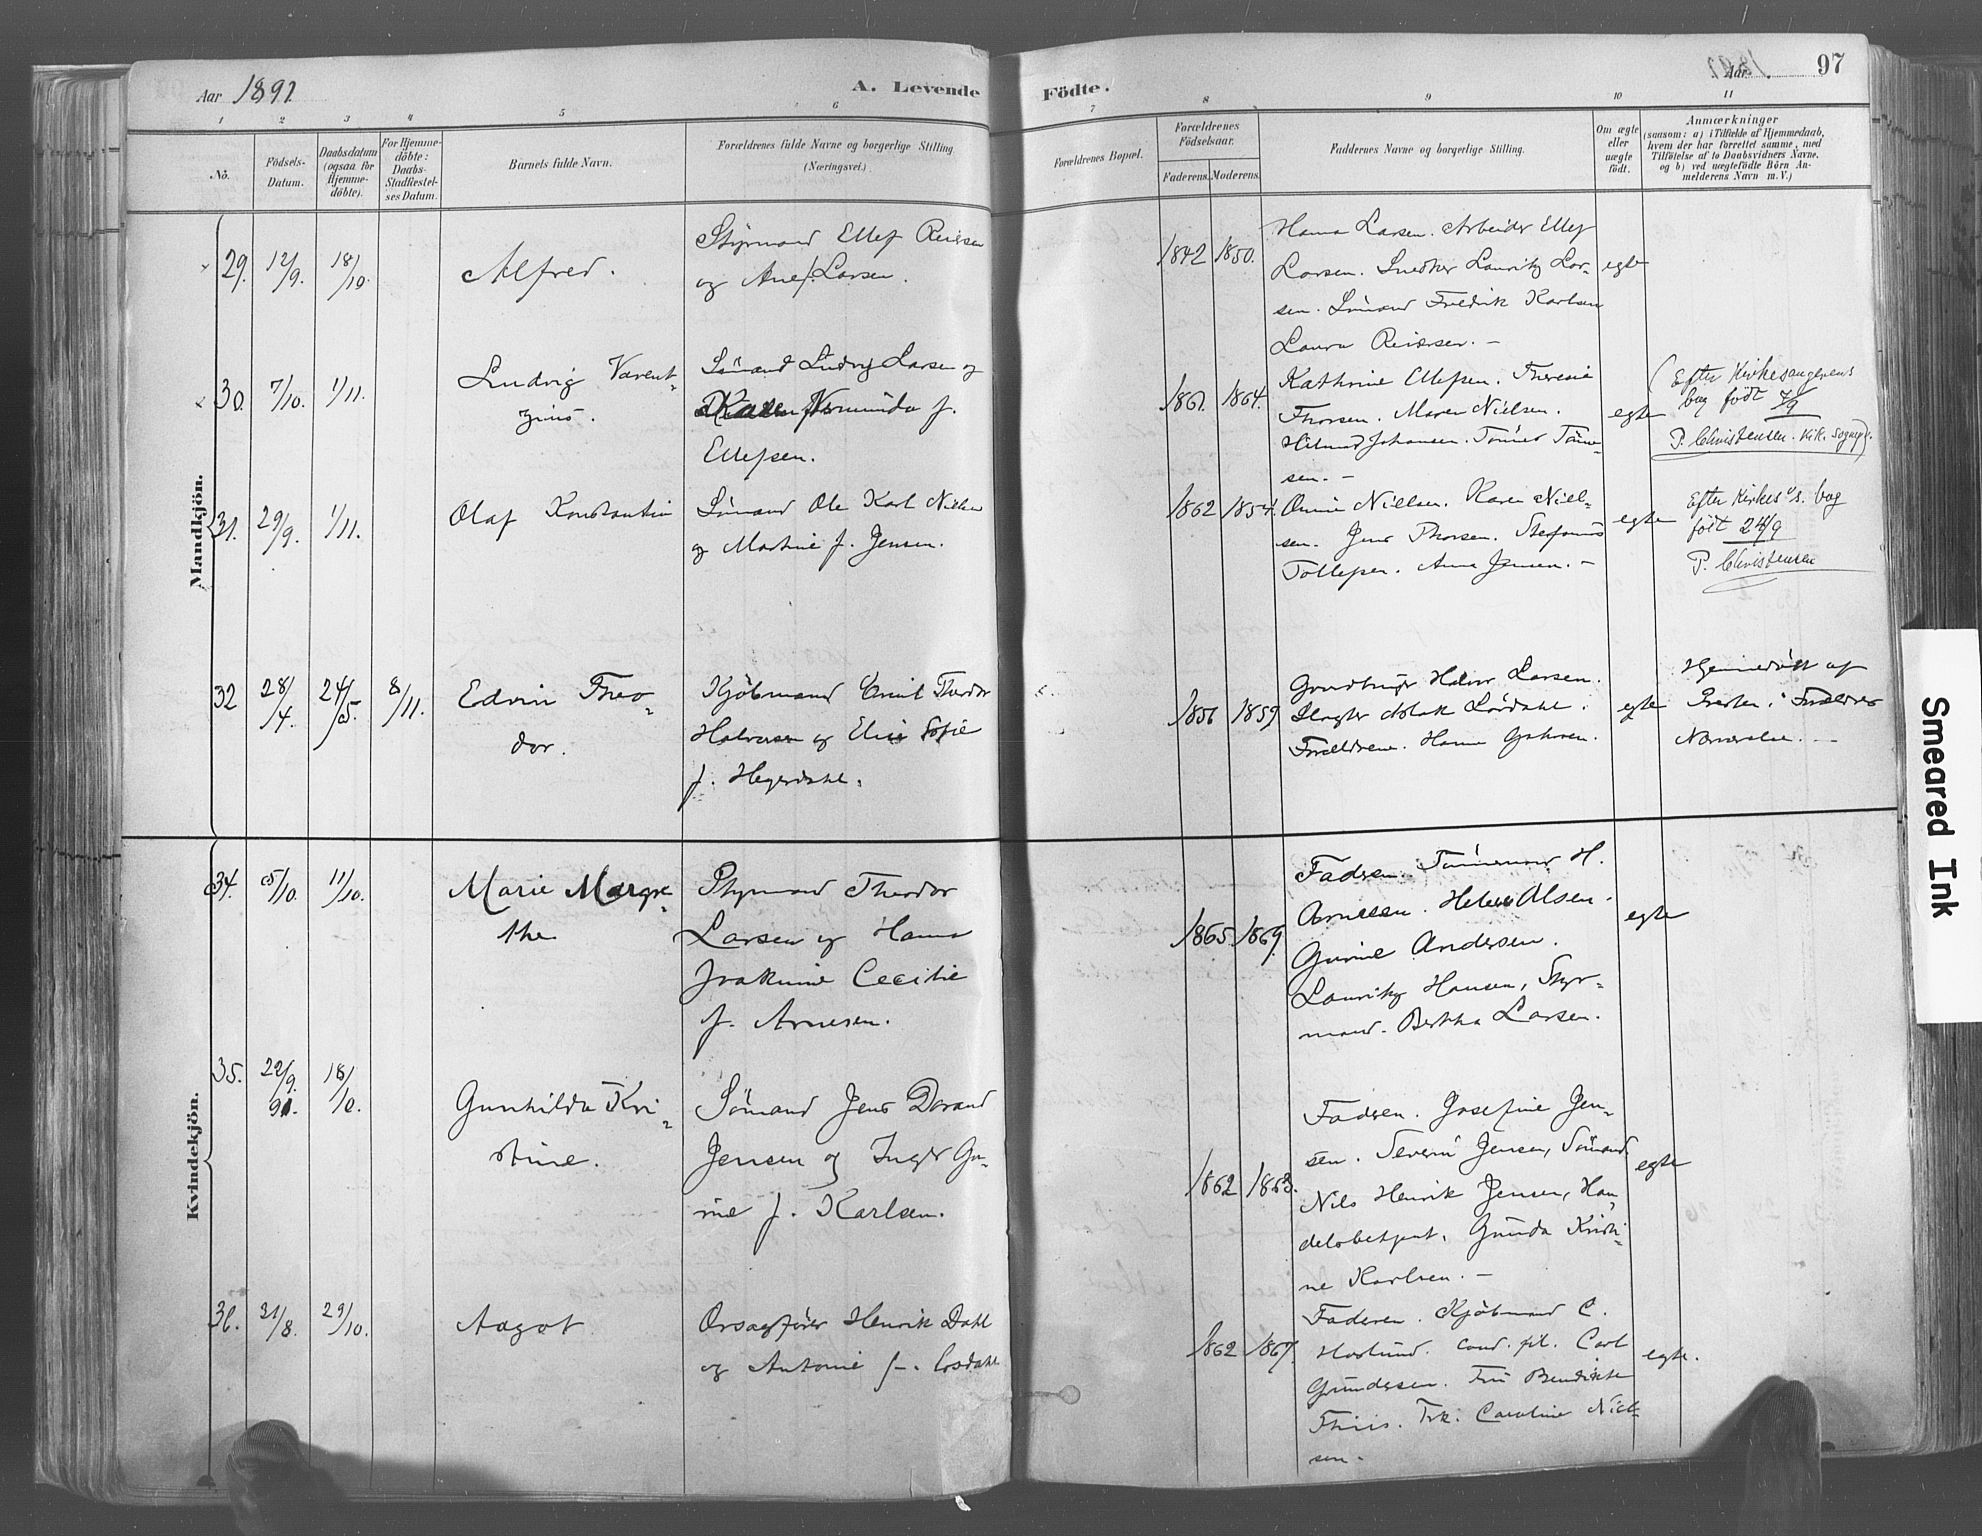 Aar 1891
A. Levende
Födte.
Aar
97
1 2 3 4 5 6 7 8 9 10 11
No.
Födsels-
Datum.
Daabsdatum
(ogsaa for
Hjemme-
döbte).
For Hjemme-
döbte:
Daabs-
Stadfæstel-
ses Datum.
Barnets fulde Navn.
Forældrenes fulde Navne og borgerlige Stilling
(Næringsvei.)
Forældrenes Bopæl.
Forældrenes
Födselsaar.
Faderens.
Moderens.
Faddernes Navne og borgerlige Stilling.
Om ægte
eller
uægte
födt.
Anmærkninger
(saasom: a) i Tilfælde af Hjemmedaab,
hvem der har forrettet samme, med
Tilföielse af to Daabsvidners Navne,
og b) ved uægtefödte Börn An-
melderens Navn m. V.)
Mandkjön.
29. 12/9. 18/10
Alfred.
Styrmand Ellef Reiersen
og Ane f. Larsen.
1842 1850.
Hanna Larsen. Arbeider Ellef
Larsen. Snedker Lauritz Lar-
sen. Sömand Fredrik Karlsen
Laura Reiersen. -
egte
30. 7/10. 1/11.
Ludvig Varent-
zius.
Sömand Ludvig Larsen og
Karen f.
Ellefsen.
1861. 1864.
Kathrine Ellefsen. Theresia
Thorsen. Maren Nielsen.
Johansen. Tönnes Tönne-
sen. -
egte
Efter Kirkesangerens
bog födt 7/9
P. Christensen. Sognep.
31. 29/9. 1/11.
Olaf Konstantin
Sömand Ole Karl Nielsen
og Martine f. Jensen.
1862 1854.
Nielsen. Karen Niel-
sen. Jens Thorsen. Stefanus
Tollefsen. Anna Jensen. -
egte
Efter Kirkes's. bog
födt 24/9
P. Christensen
32 28/4. 24/5. 8/11.
Edvin Theo-
dor.
Kjöbmand Emil Theodor
Halvorsen og Elise Sofie
f. Hegerdahl.
1856 1859
Larsen.
Slagter Aslak Lördahl.
Forældrene. Hanna
egte
Hjemmedöbt af
Presten i Forældres
Nærværelse. -
Kvindekjön.
34. 5/10. 11/10.
Marie Margre-
the
Styrmand Theodor
Larsen og Hanna
Joakime Cecilie
f. Arnesen.
1865. 1869.
Faderen. Tömmermand H.
Arnesen. Helene Olsen.
Gurine Andersen.
Lauritz Hansen, Styr-
mand. Bertha Larsen.
egte
35. 22/9. 91. 18/10.
Gunhilda Kri-
stine.
Sömand Jens Dorand
Jensen og Inger Gu-
rine f. Karlsen.
1862 1863.
Faderen. Josefine Jen-
sen. Severin Jensen, Sömand
Nils Henrik Jensen, Han-
delsbetjent. Gunda Kristi-
ne Karlsen. -
egte
36. 31/8. 29/10.
Aagot
Overagförer Henrik Dahl
og Antonie f. Losdahl
1862 1867.
Faderen. Kjöbmand C.
Haslund. Cand. fil. Carl
Gundersen. Fru Bendikte
Thiis. Frk. Caroline Niel-
sen.
egte.
Smeared Ink